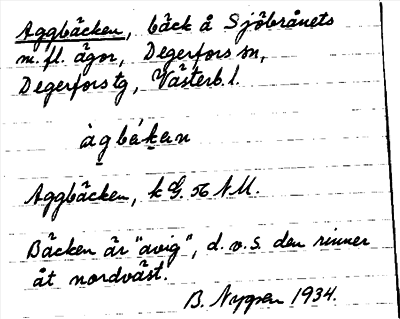 Aggbäcken, bäck å Sjöbrånets
m.fl. ägor, Degerfors sn,
Degerfors tg, Västerb. l.
àgbä́ḵan
Aggbäcken, k G. 56 NM.
Bäcken är "avig", d.v.s. den rinner
åt nordväst.
B. Nygren 1934.